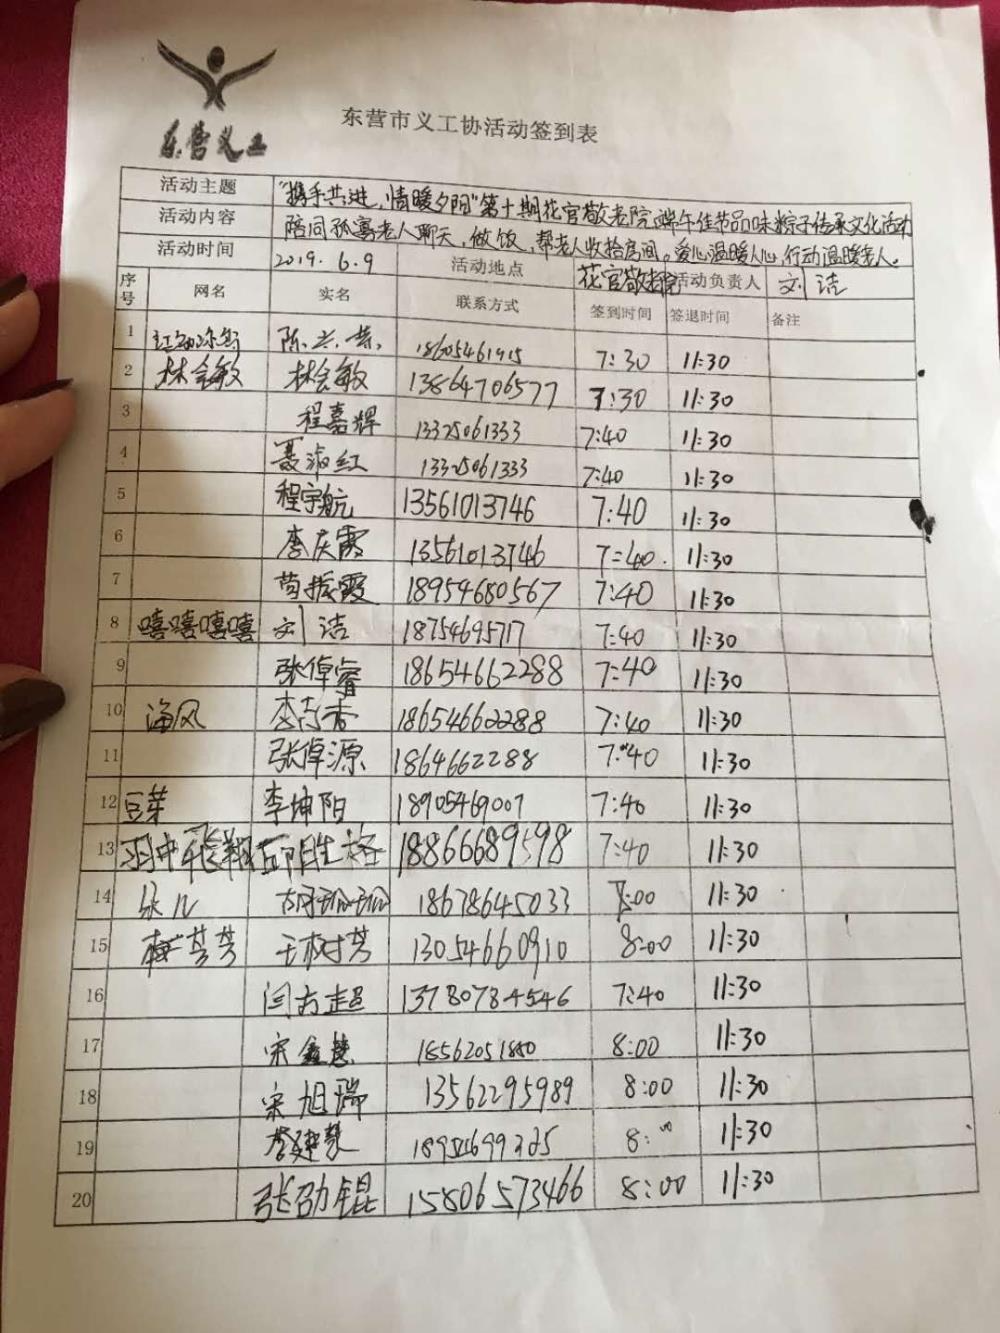 东营义工
东营市义工协活动签到表
活动主题 "携手共进,情暖夕阳"第十期花官敬老院端午佳节品味粽子传承文化活动
活动内容 陪同孤寡老人聊天,做饭,帮老人收拾房间。爱心温暖人心,行动温暖老人。
活动时间 2019.6.9 活动地点 花官敬老院 活动负责人 刘洁
序号 网名 实名 联系方式 签到时间 签退时间 备注
1 陈兰荣 18605461915 7:30 11:30
2 林会敏 林会敏 13864706577 7:30 11:30
3 程嘉辉 13325061333 7:40 11:30
4 聂淑红 13325061333 7:40 11:30
5 程宇航 13561013746 7:40 11:30
6 李庆霞 13561013746 7:40. 11:30
7 苗振霞 18954680567 7:40 11:30
8 嘻嘻嘻嘻 刘洁 1875469577 7:40 11:30
9 张倬睿 18654662288 7:40 11:30
10 海风 李志香 18654662288 7:40 11:30
11 张倬源 1864662288 7:40 11:30
12 豆芽 李坤阳 18905469007 7:40 11:30
13 羽中飛翔 邱胜格 18866689598 7:40 11:30
14 胡瑜瑜 18678645033 8:00 11:30
15 梅芸芳 王树芳 13054660910 8:00 11:30
16 闫方超 13780784546 7:40 11:30
17 宋鑫慧 18562051880 8:00 11:30
18 宋旭瑞 13562295989 8:00 11:30
19 18954699325 8:00 11:30
20 张劭锟 15806573466 8:00 11:30